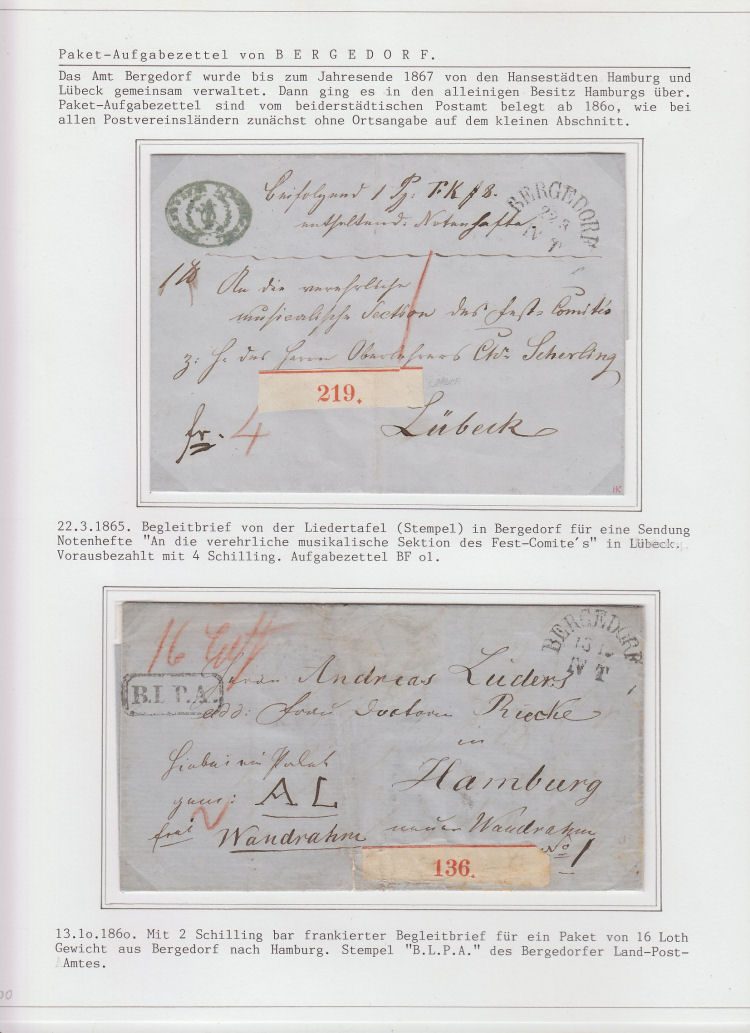 Paket-Aufgabezettel von B E R G E D O R F.
Das Amt Bergedorf wurde bis zum Jahresende 1867 von den Hansestädten Hamburg und
Lübeck gemeinsam verwaltet. Dann ging es in den alleinigen Besitz Hamburgs über.
Paket-Aufgabezettel sind vom beiderstädtischen Postamt belegt ab 186o, wie bei
allen Postvereinsländern zunächst ohne Ortsangabe auf dem kleinen Abschnitt.
Beifolgend 1
enthaltend. Notenhefte
BERGEDORF
22.3
IV T
An die verehrliche
musicalische Section des Fest-Comités
z: H. des Herrn Oberlehrers Chr Scherling
219.
fr. 4
Lübeck
22.3.1865. Begleitbrief von der Liedertafel (Stempel) in Bergedorf für eine Sendung
Notenhefte "An die verehrliche musikalische Sektion des Fest-Comite's" in Lübeck.
Vorausbezahlt mit 4 Schilling. Aufgabezettel BF o1.
16 Loth
BERGEDORF
13 10
IV T
B.L.P.A.
Herrn Andreas Lüders
add: Frau Doctorin Riecke
in
Hamburg
Hiebei ein Paket
gem: AL
frei
2
Wandrahm neuer Wandrahm
No 1
136.
13.1o.186o. Mit 2 Schilling bar frankierter Begleitbrief für ein Paket von 16 Loth
Gewicht aus Bergedorf nach Hamburg. Stempel "B.L.P.A." des Bergedorfer Land-Post-
Amtes.